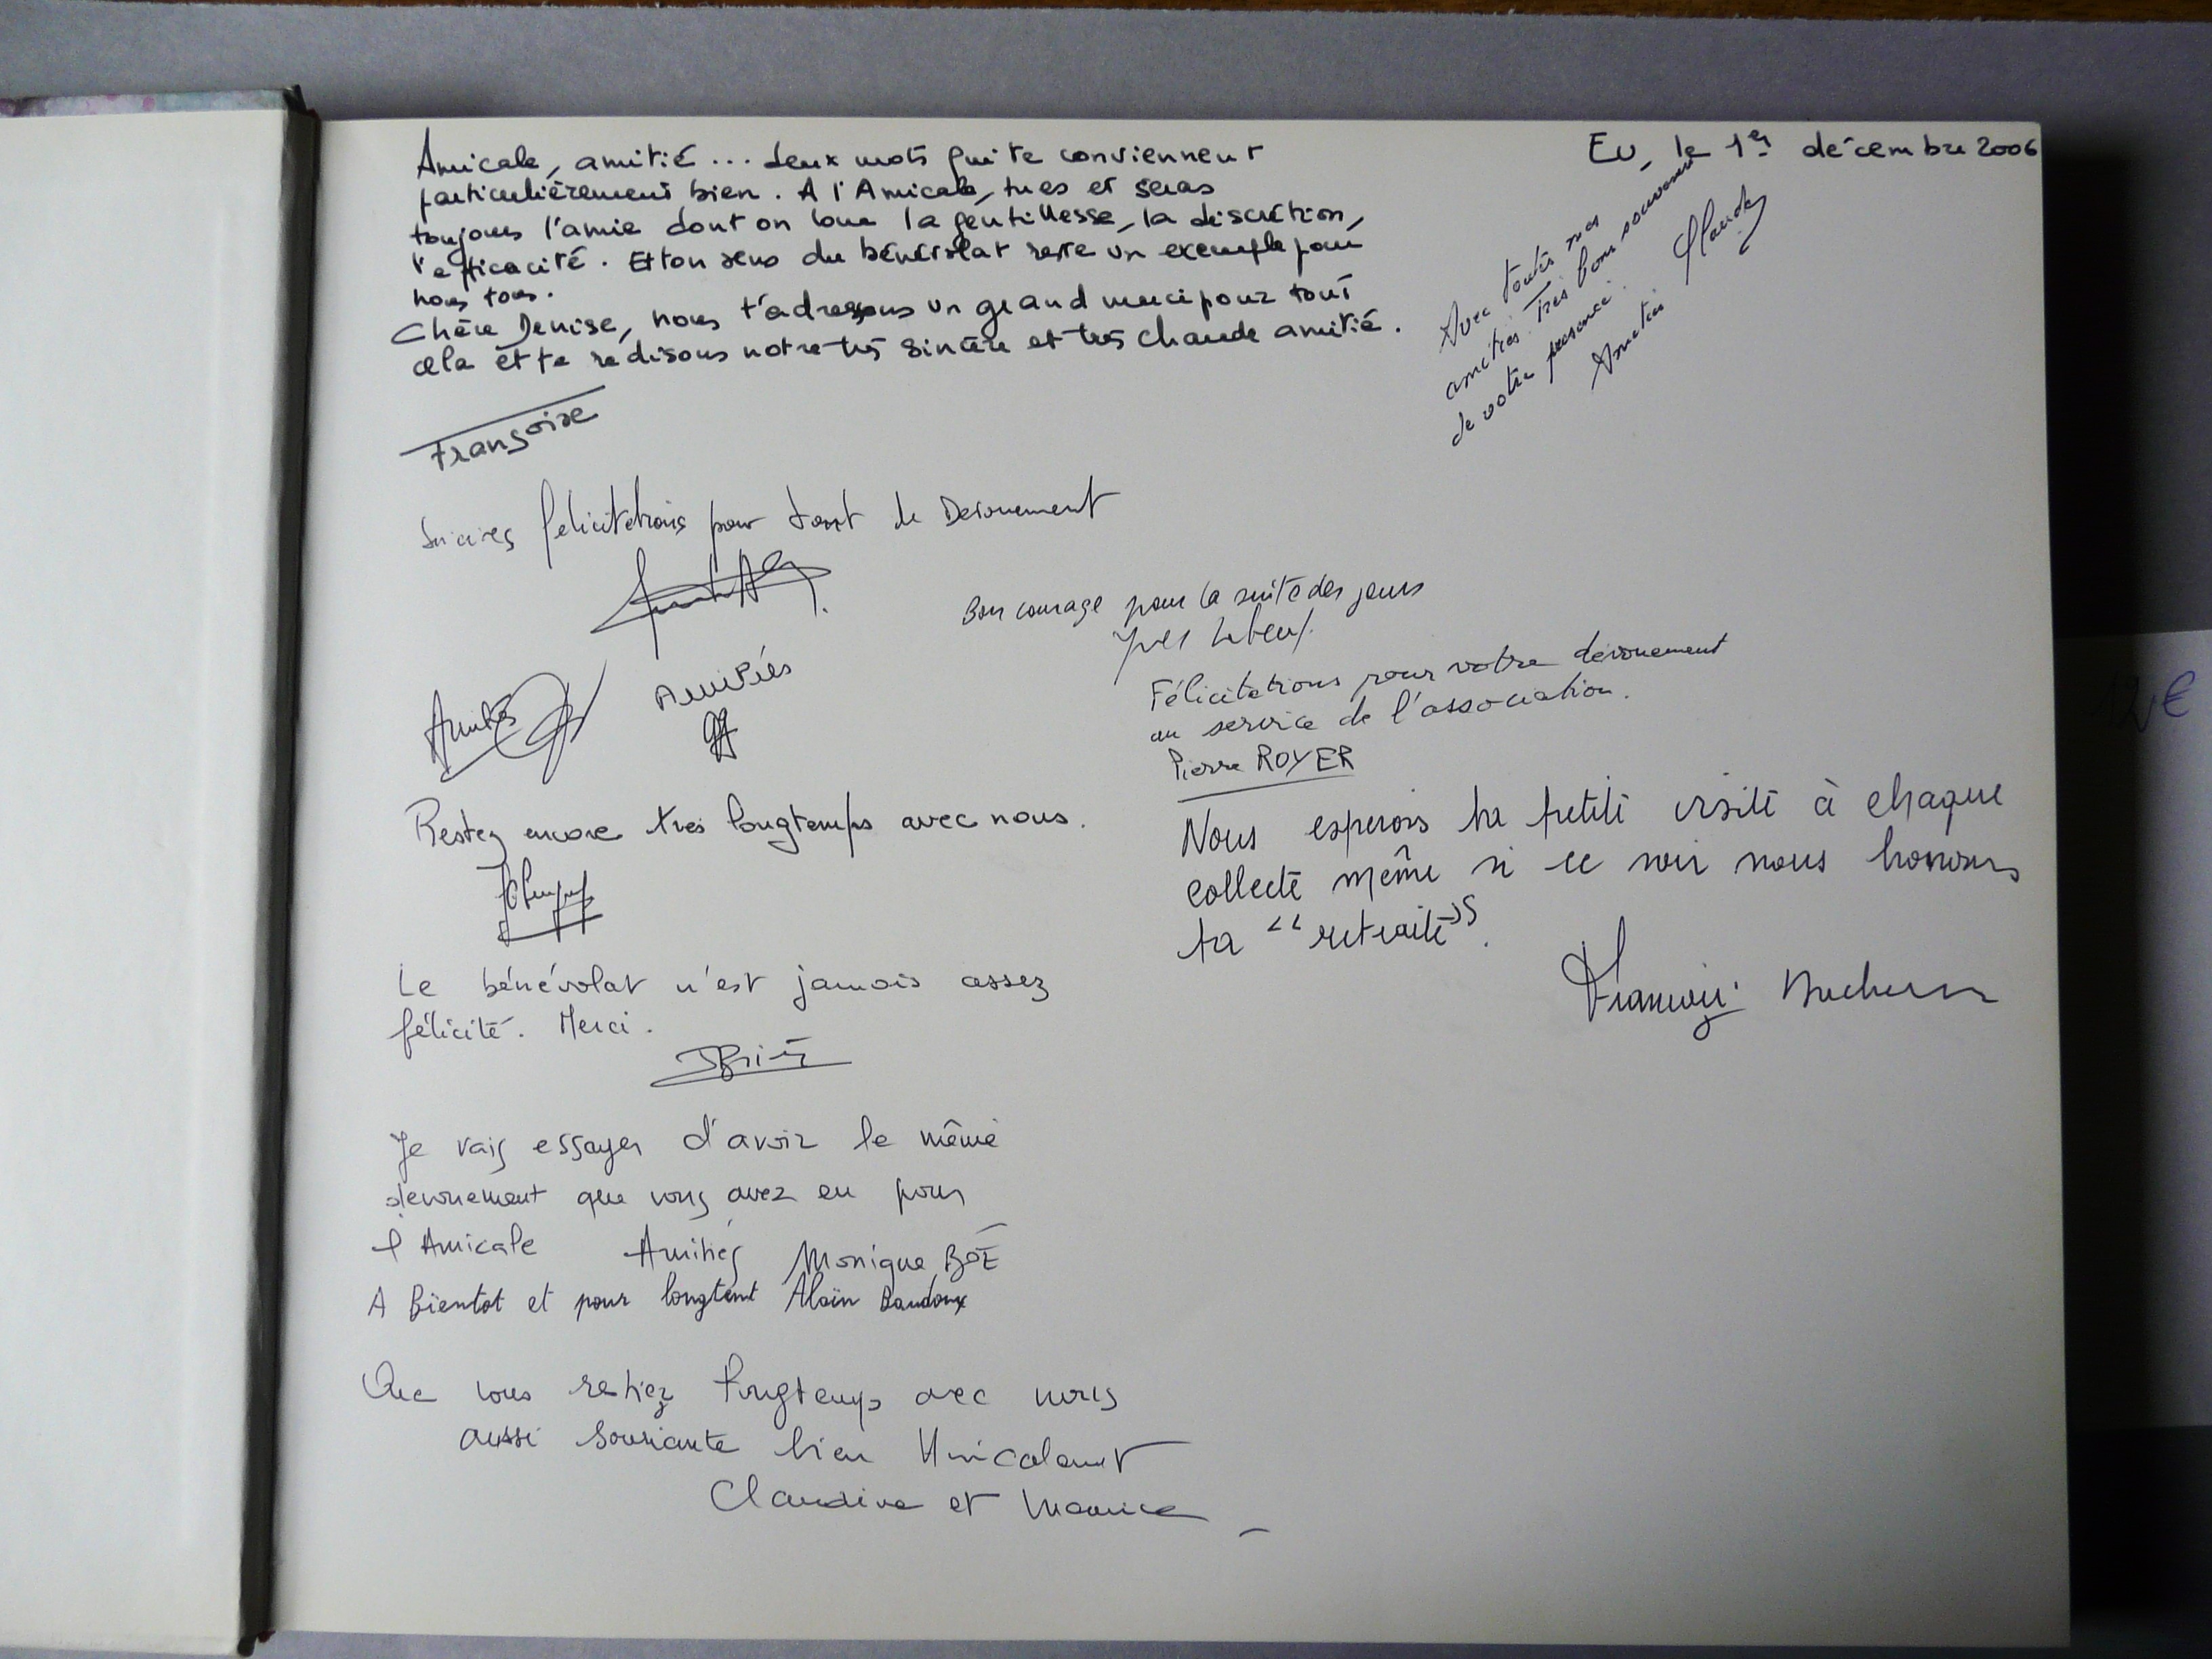 Eu, le 1er décembre 2006
Amicale, amitié... deux mots qui te conviennent
particulièrement bien. A l'Amicale, tu es et seras
toujours l'amie dont on loue la gentillesse, la discrétion,
l'efficacité. Et ton sens du bénévolat reste un exemple pour
nous tous.
Chère Denise, nous t'adressons un grand merci pour tout
cela et te redisons notre très sincère et très chaude amitié.
Françoise
Avec toutes nos
amitiés. Très bons souvenirs
de votre présence.
Claude
Sincères félicitations pour tant de Devouement
Bon courage pour la suite des jours
Yves
Félicitations pour votre dévouement
au service de l'association.
Pierre ROYER
Amitiés
Amitiés
Restez encore très longtemps avec nous.
Nous esperons ta petite visite à chaque
collecte même si ce soir nous honorons
ta "retraite".
Le bénévolat n'est jamais assez
félicité. Merci.
Je vais essayer d'avoir le même
devouement que vous avez eu pour
l'Amicale Amitiés Monique BOÉ
A Bientot et pour longtemt Alain Baudoux
Que vous restiez longtemps avec nous
aussi souriante bien Amicalement
Claudine et Maurice
2€